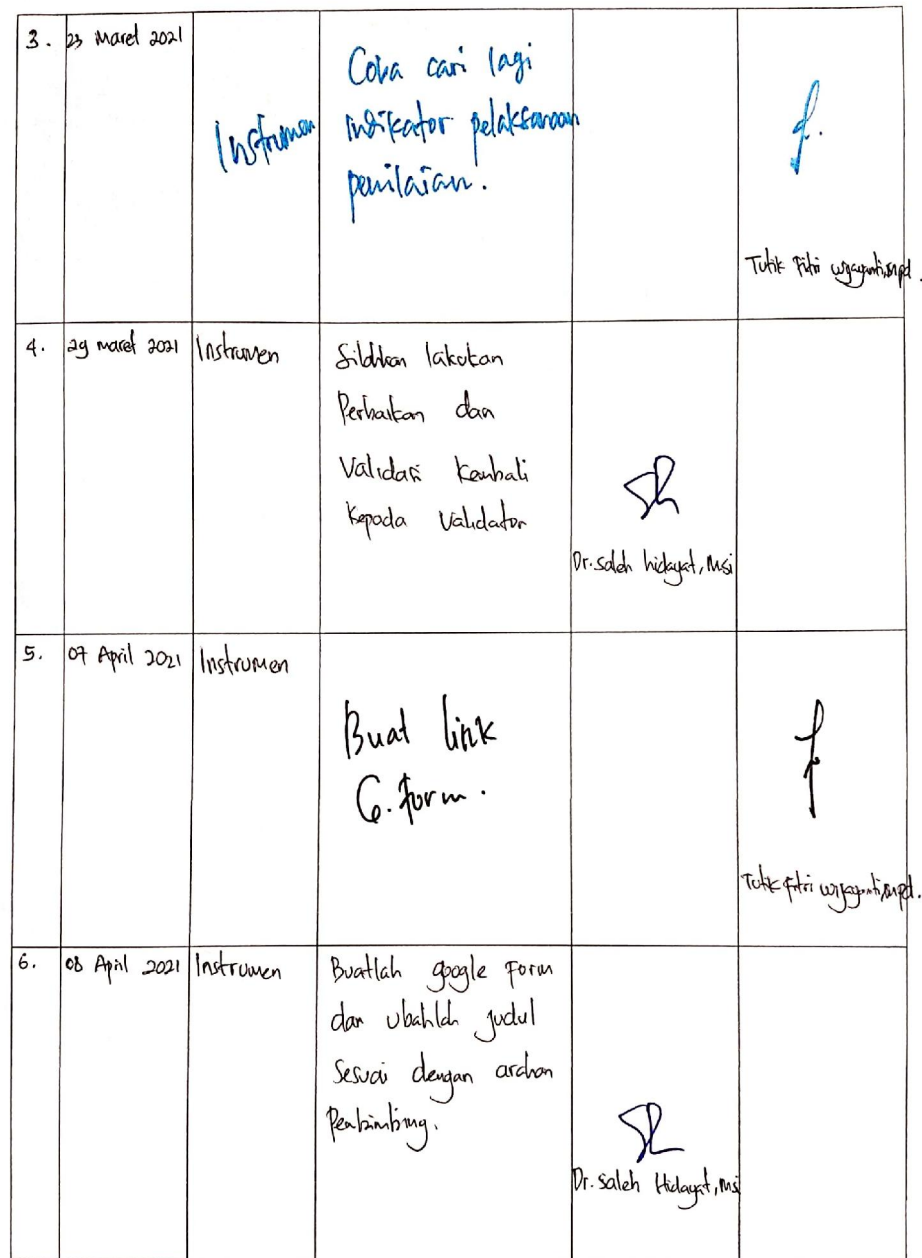 3. 23 Maret 2021
Instrumen
Coba cari lagi
indikator pelaksanaan
penilaian.
Tutik Fitri Wijayanti, M.pd.
4. 29 maret 2021 Instrumen
Silahkan lakukan
Perbaikan dan
Validasi Kembali
Kepada Validator
Dr. Saleh hidayat, Msi
5. 07 April 2021 Instrumen
Buat link
G. Form.
Tutik Fitri wijayanti, M.pd.
6. 08 April 2021 Instrumen
Buatlah google Form
dan Ubahlah judul
Sesuai dengan arahan
Pembimbing.
Dr. Saleh Hidayat, Msi